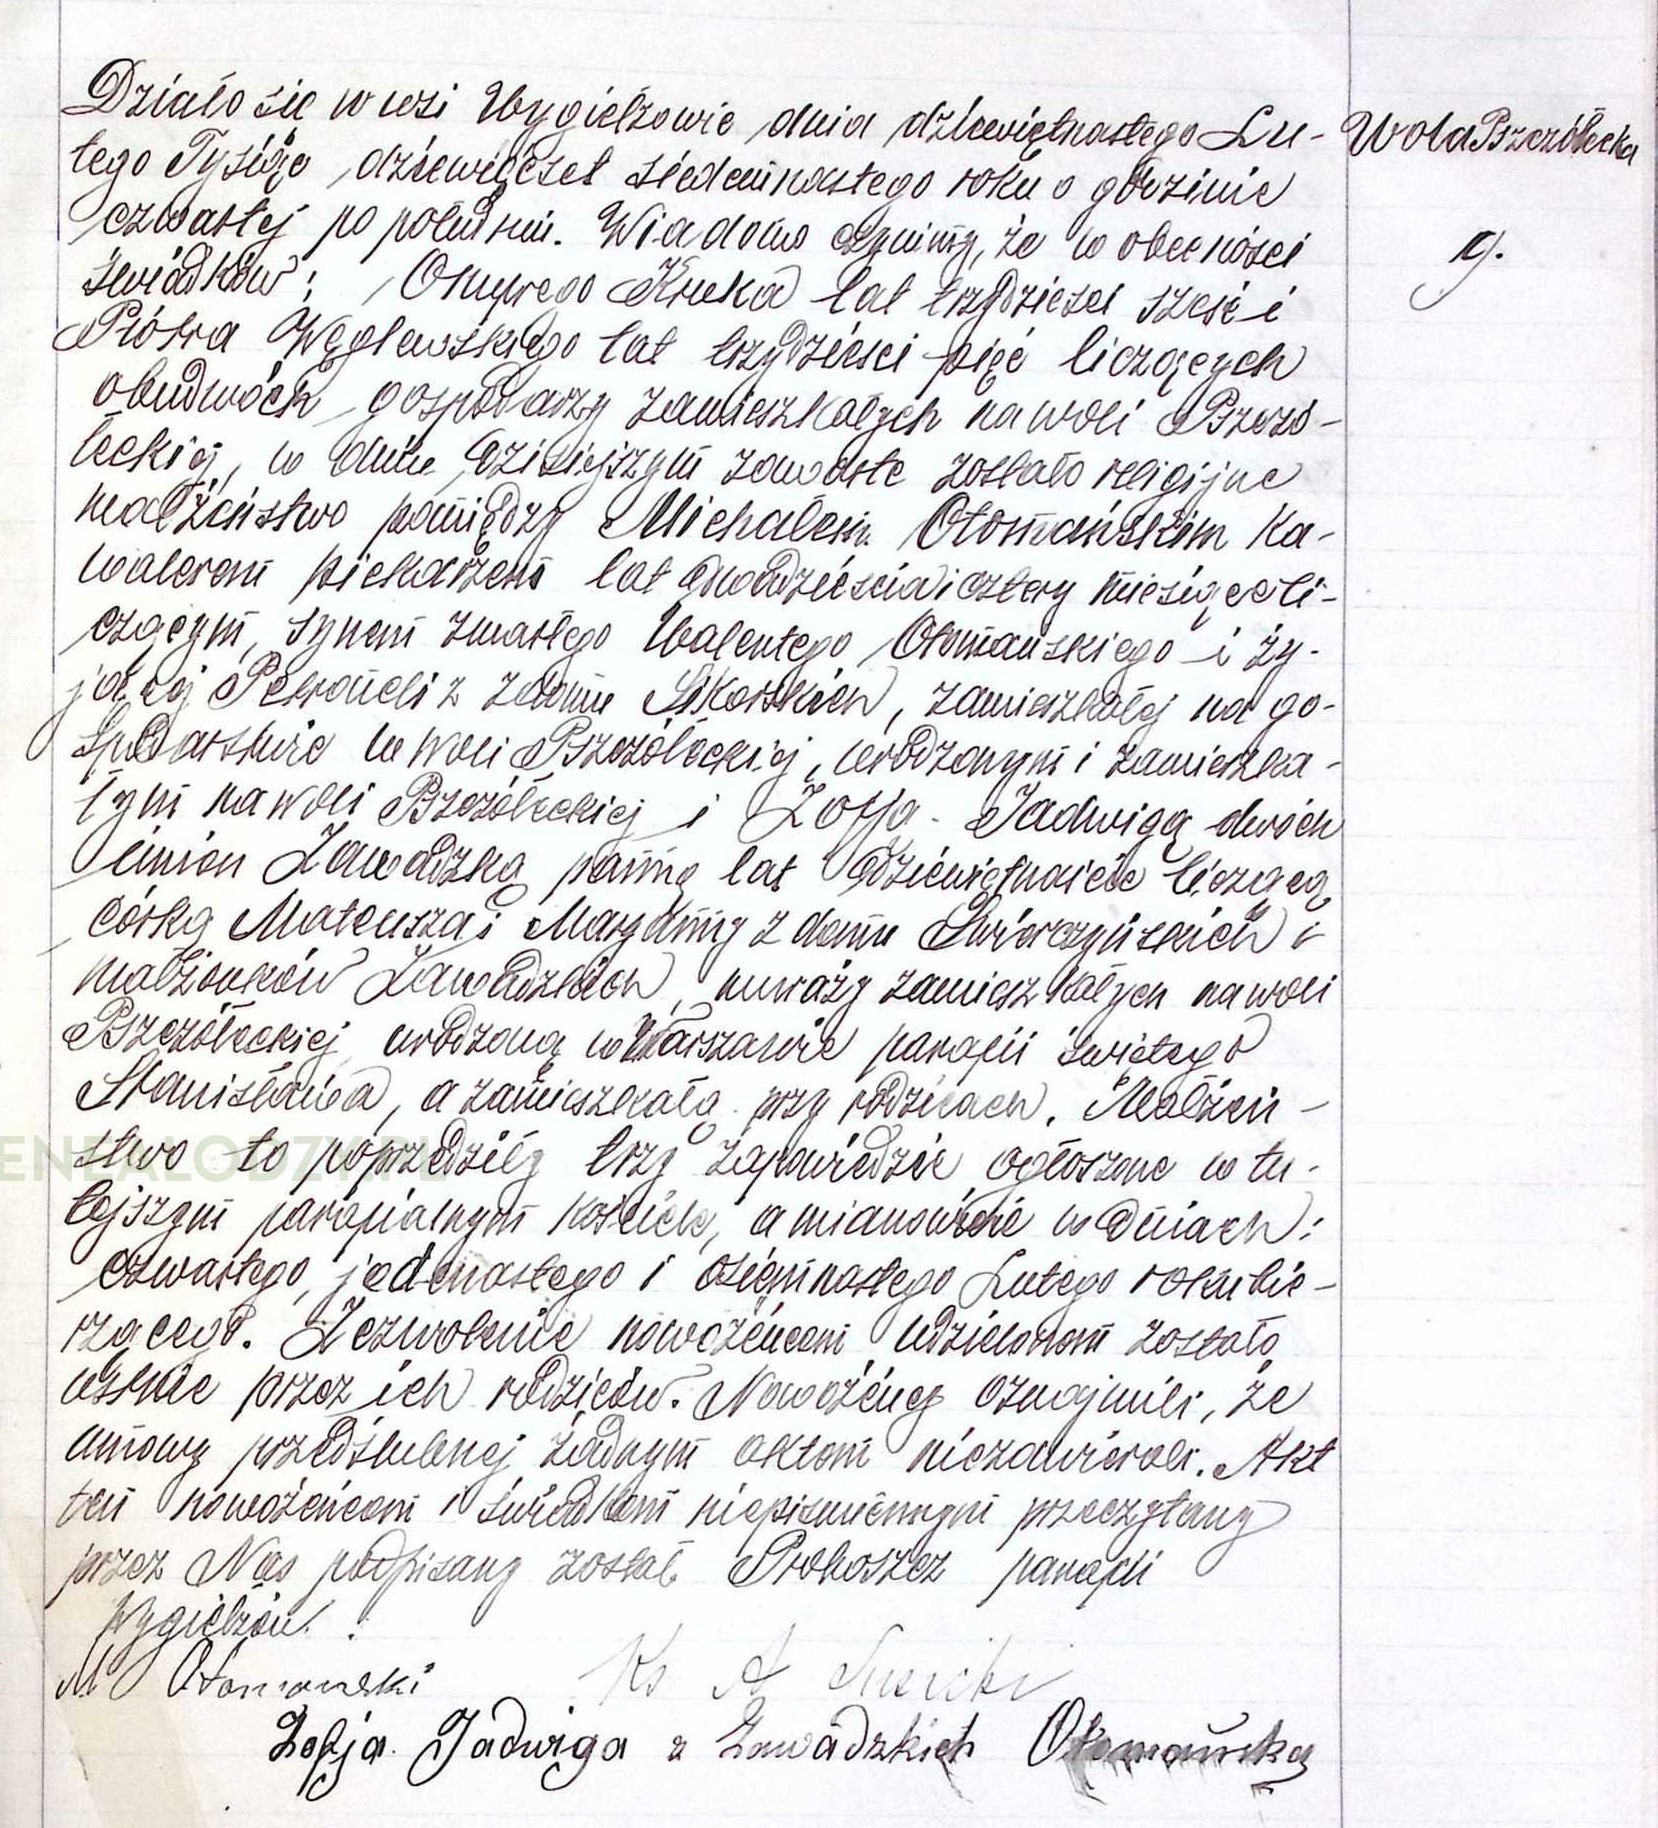 Działo się w wsi Wygiełzowie dnia dziewiętnastego Lu-
Wola Pszczółecka
tego Tysiąc dziewięćset siedemnastego roku o godzinie
czwartej po południu. Wiadomo czynimy, że w obecności
9.
świadków: Kruka lat trzydzieści sześć i
Piotra Węglewskiego lat trzydzieści pięć liczących
obudwóch gospodarzy zamieszkałych na woli Pszczó-
łeckiej, w dniu dzisiejszym zawarte zostało religijne
małżeństwo pomiędzy Michałem Otomańskim ka-
walerem piekarzem lat dwadzieścia i cztery miesiące li-
czącym, synem zmarłego Walentego Otomańskiego i ży-
jącej Petroneli z domu Sikorskich, zamieszkałej na go-
spodarstwie w woli Pszczółeckiej, urodzonym i zamieszka-
łym na woli Pszczółeckiej i Zofją-Jadwigą dwóch
imion Zawadzką panną lat dziewiętnaście liczącą
córką Mateusza i Maryanny z domu Świerczyńskich
małżonków Zawadzkich, zamieszkałych na woli
Pszczółeckiej urodzoną w Warszawie parafii świętego
Stanisława, a zamieszkałą przy rodzicach. Małżeń-
stwo to poprzedziły trzy zapowiedzie ogłoszone w tu-
tejszym parafialnym kościele, a mianowicie w dniach:
czwartego, jedenastego i osiemnastego Lutego roku bie-
rzącego. Zezwolenie nowożeńcom udzielonem zostało
ustnie przez ich rodziców. Nowożeńcy oznajmili, że
umowy przedślubnej żadnym aktem niezawierali. Akt
ten nowożeńcom i świadkom niepismiennym przeczytany
przez Nas podpisany został Proboszcz parafii
Wygiełzów.
M Otomański Ks A
Zofja Jadwiga z Zawadzkich Otomańska